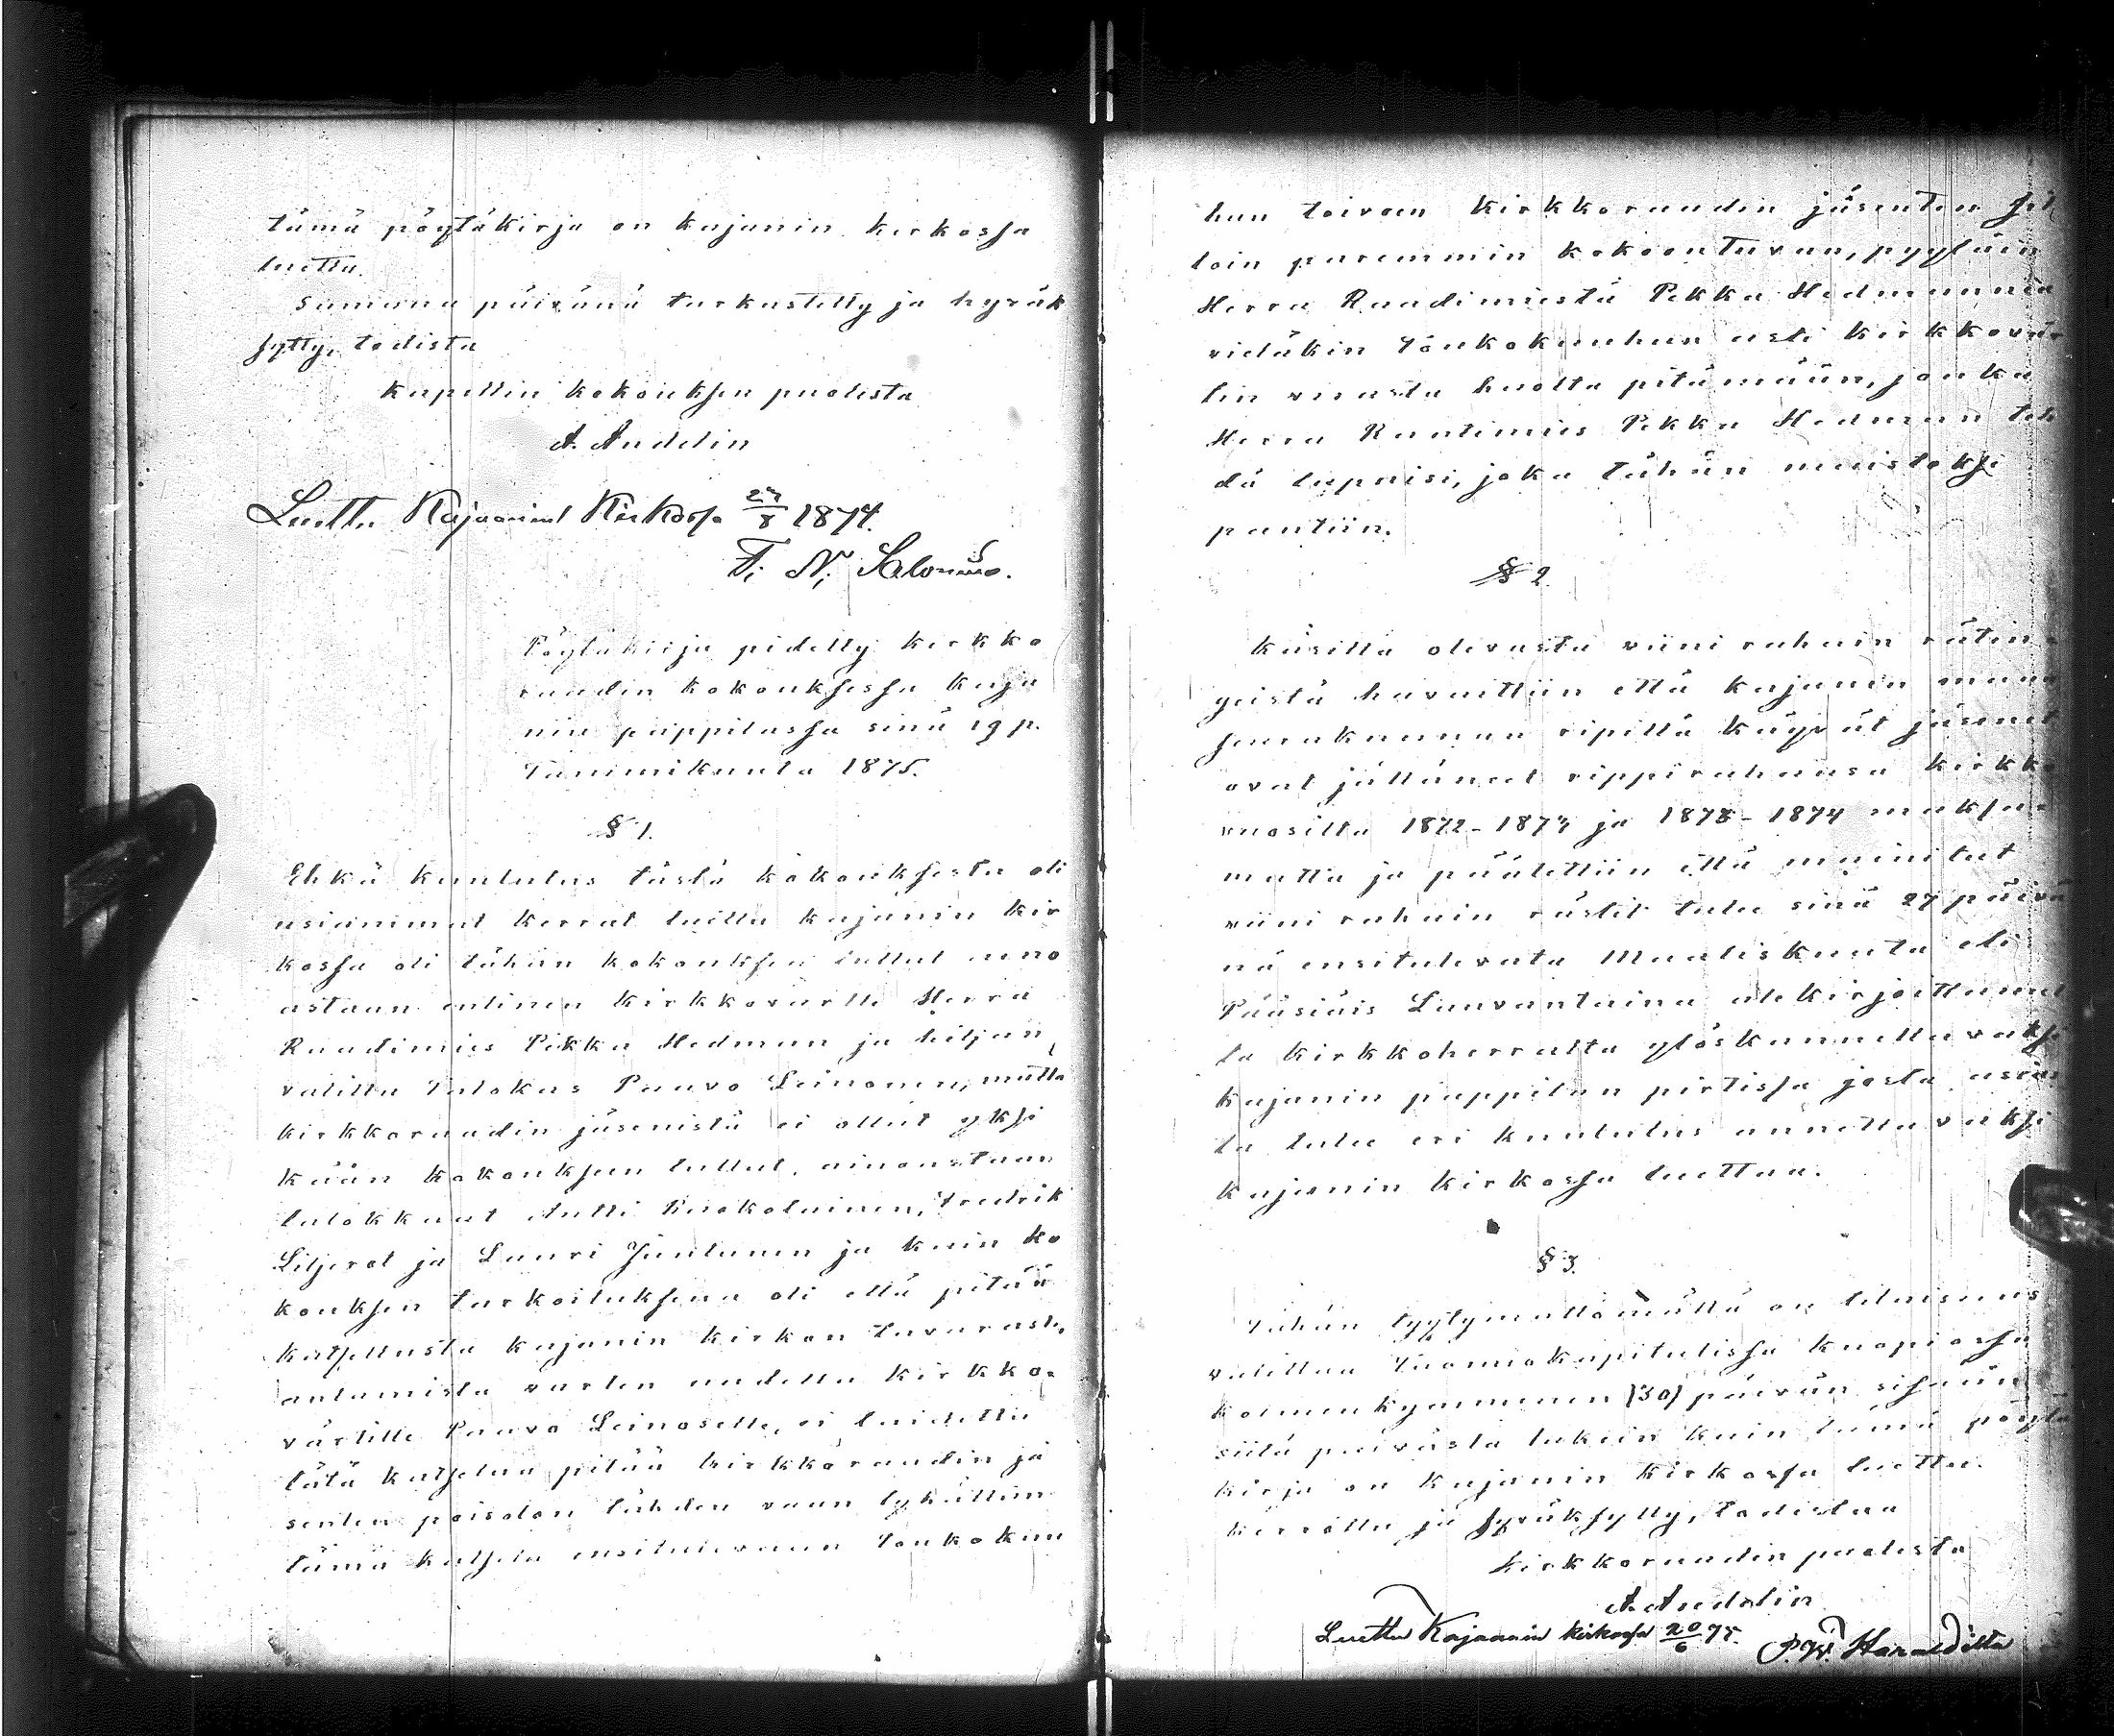 tämä pöytäkirja on kajanin kirkossa
luettu.
Samana päivänä tarkastettu ja hyväk
sytty, todista
kapellin kokouksen puolesta
A. Andelin
Luettu Kajaanin Kirkossa 27/8 1874.
F. N. Salonius.
Pöytäkirja pidetty kirkko
raadin kokouksessa kaja
nin pappilassa sinä 19 p.
Tammikuuta 1875.
§ 1.
Ehkä kuulutus tästä kokouksesta oli
usiammat kerrat luettu kajanin kir
kossa oli tähän kokouksen tullut aino
astaan entinen kirkkovärtti Herra
Raadimies Pekka Hedman ja hiljan
valittu talokas Paavo Leinonen, mutta
kirkkoraadin jäsenistä ei ollut yksi
kään kokouksen tullut, ainoastaan
talokkaat Antti Ruokolainen, Fredrik
Liljerot ja Lauri Juntunen ja kuin ko
kouksen tarkoituksena oli että pitää
katsellusta kajanin kirkon tavarast.
antamista varten uudelle kirkko-
värtille Paavo Leinoselle, ei taidettu
tätä katselua pitää kirkkoraadin jä
senten poisolon tähden vaan lykättiin
tämä katselu ensitulevaan toukokuu
hun toivoen kirkkoraadin jäsenten sil
loin paremmin kokoontuvan, pyytäin
Herra Raadimiestä Pekka Hedmannia
vieläkin toukokuuhun asti kirkkovär
tin virasta huolta pitämään, jonka
Herra Raatimies Pekka Hedman teh
dä lupaisi, joka tähän muistoksi
pantiin.
§ 2.
käsillä olevasta viini rahain rätin-
geistä havaittiin että kajanin maa
seurakunnan ripillä käyvät jäsenet
ovat jättäneet rippirahaansa kirkko
vuosilta 1872-1873 ja 1873-1874 maksa-
matta ja päätettiin että mainitut
viini rahain rästit tulee sinä 27 päivä
nä ensitulevata Maaliskuuta eli
Pääsiäis Lauvantaina allekirjoittanut
ta kirkkoherralta ylöskannettavaksi
kajanin pappilan pirtissä josta asias
ta tulee eri kuulutus annettavaksi
kajanin kirkossa luettaa.
§ 3.
Tähän tyytymättömällä on tilaisuus
valittaa Tuomiokapitulissa kuopiossa
kolmenkymmenen (30) päivän sisään
siitä päivästä lukein kuin tämä pöytä
kirja on kajanin kirkossa luettu.
kerrottu ja hyväksytty, todistaa
kirkkoraadin puolesta
A. Andelin
Luettu Kajaanin kirkossa 20/6 75.